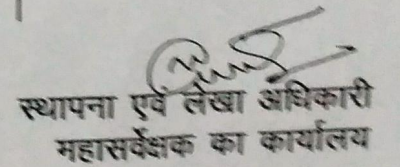 स्थापना एवं लेखा अधिकारी
महासर्वेक्षक का कार्यालय